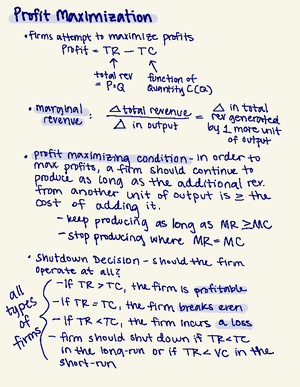 Profit Maximization
• firms attempt to maximize profits
Profit = TR − TC
↑ ↑
total rev function of
= P·Q quantity C(Q)
• marginal revenue : Δ total revenue / Δ in output = Δ in total rev generated by 1 more unit of output
• profit maximizing condition - in order to
max profits, a firm should continue to
produce as long as the additional rev.
from another unit of output is ≥ the
cost of adding it.
- keep producing as long as MR ≥ MC
- stop producing where MR = MC
• Shutdown Decision - should the firm
operate at all?
all types of firms
- If TR > TC, the firm is profitable
- If TR = TC, the firm breaks even
- If TR < TC, the firm incurs a loss
- firm should shut down if TR < TC
in the long-run or if TR < VC in the
short-run